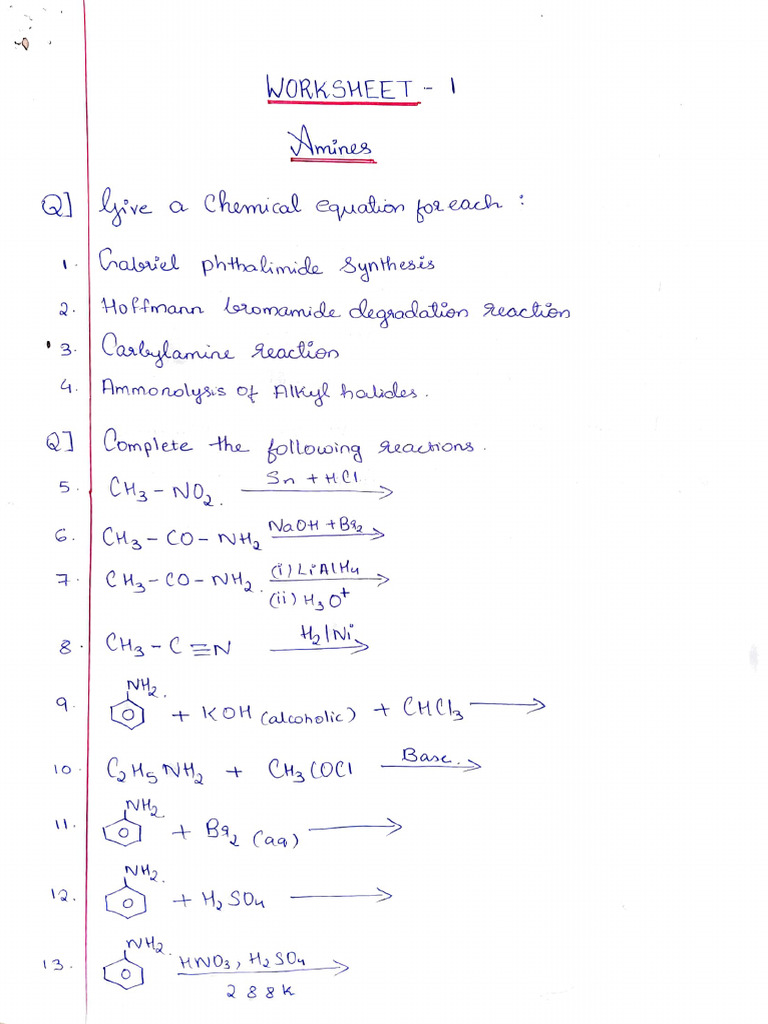 WORKSHEET - 1
Amines
Q] Give a Chemical equation for each :
1. Gabriel phthalimide Synthesis
2. Hoffmann bromamide degradation reaction
3. Carbylamine reaction
4. Ammonolysis of Alkyl halides.
Q] Complete the following reactions.
5. CH3 - NO2. Sn + HCl →
6. CH3 - CO - NH2 NaOH + Br2 →
7. CH3 - CO - NH2. (i) LiAlH4 (ii) H3O+ →
8. CH3 - C ≡ N H2/Ni →
9. NH2. + KOH (alcoholic) + CHCl3 →
10. C2H5NH2 + CH3COCl Base. →
11. NH2. + Br2 (aq) →
12. NH2. + H2SO4 →
13. NH2. HNO3, H2SO4 → 288K